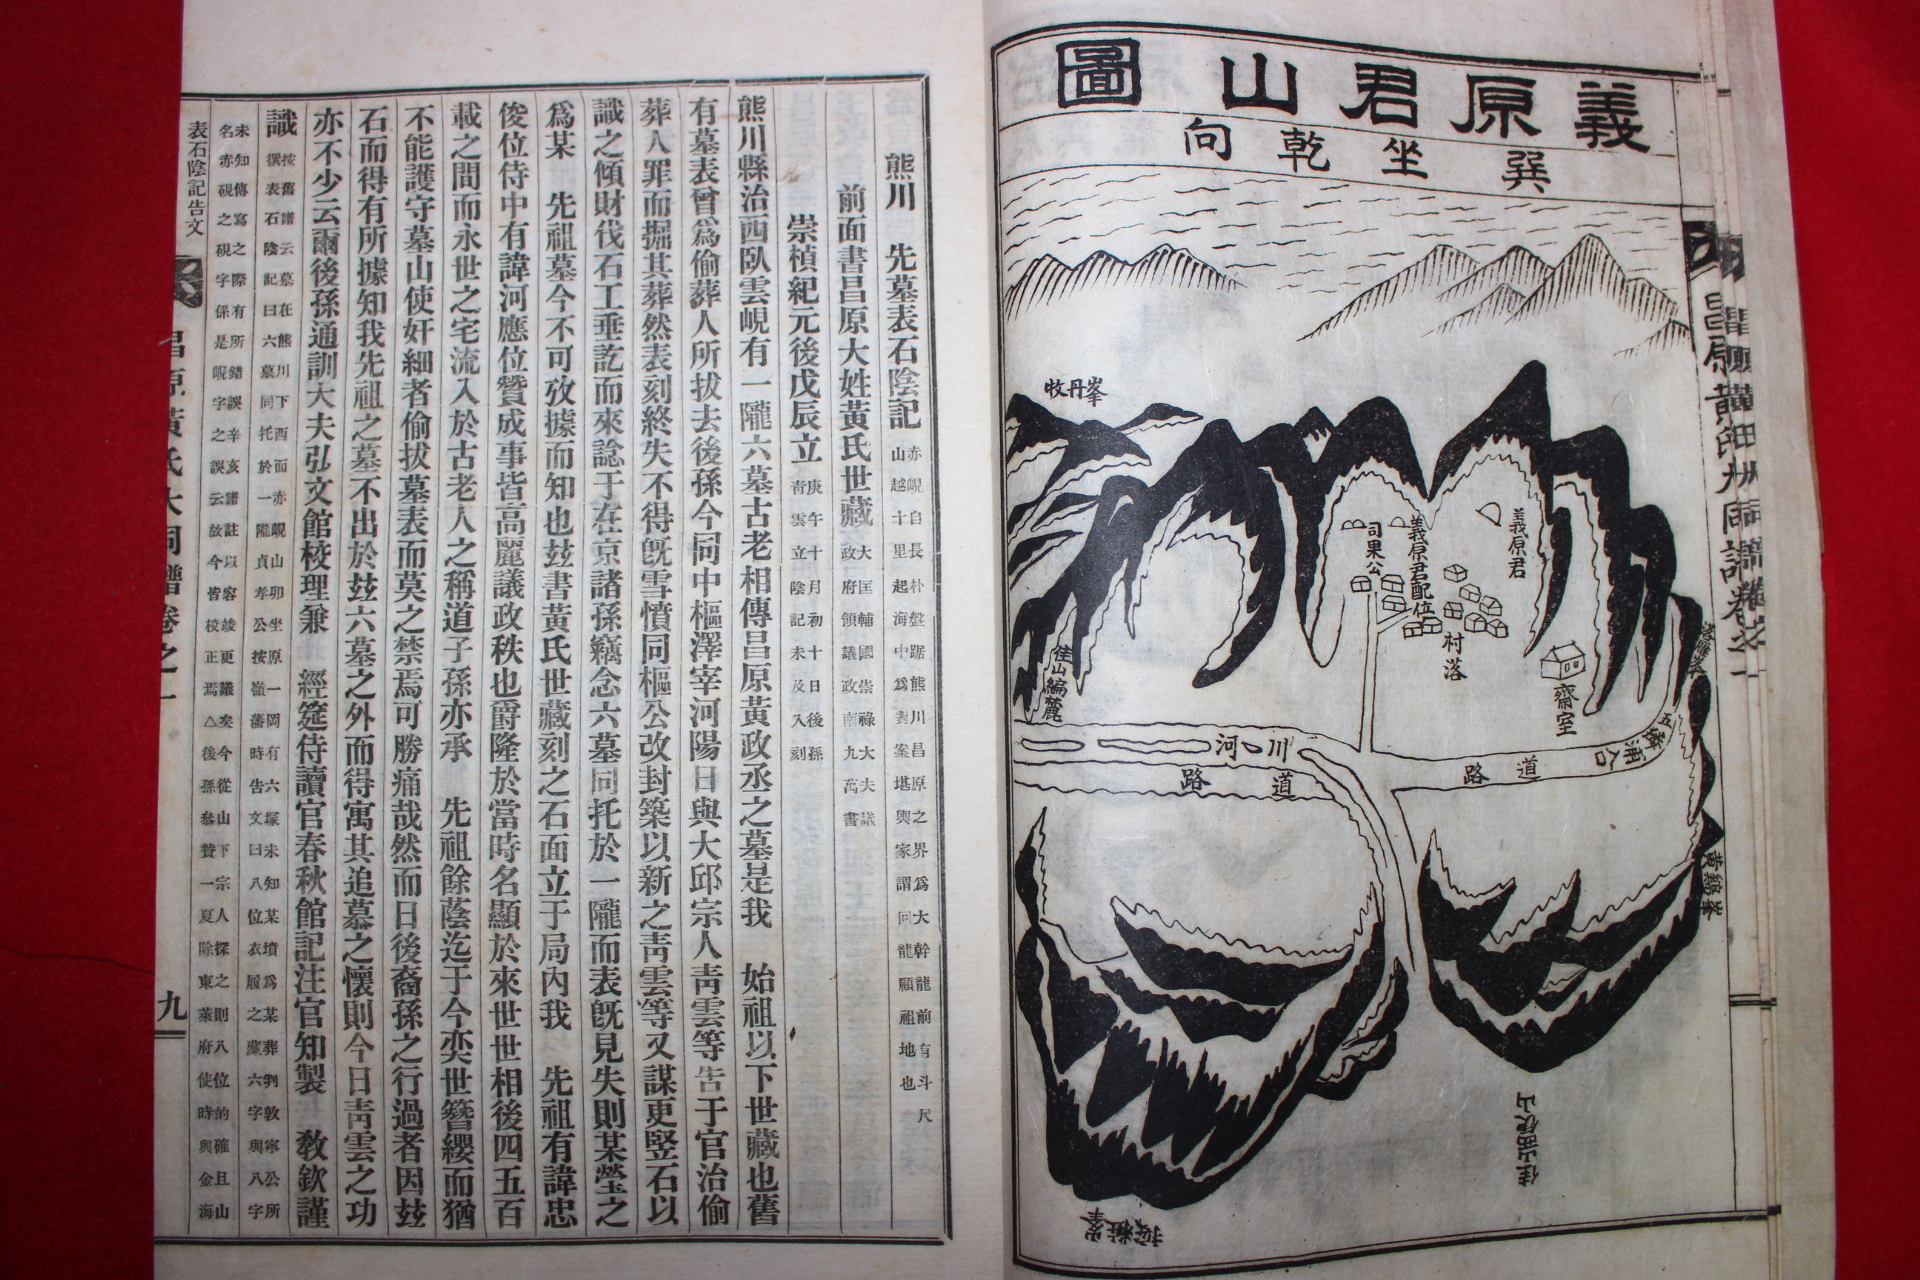 義原君山圖
巽坐乾向
牧丹峯
義原君
義原君配位
司果公
村落
齋室
佳山編麓
河川
道路
道路
昌原黃氏大同譜卷之一
熊川　先墓表石陰記
赤峴自長朴盤踞熊川昌原之界爲大幹龍前有斗尺
山越十里起海中爲對案堪輿家謂回龍顧祖地也
前面書昌原大姓黃氏世藏
大匡輔國崇祿大夫議
政府領議政南九萬書
崇楨紀元後戊辰立
庚午十月初十日後孫
靑雲立陰記未及入刻
熊川縣治西臥雲峴有一隴六墓古老相傳昌原黃政丞之墓是我　始祖以下世藏也舊
有墓表曾爲偷葬人所拔去後孫今同中樞澤宰河陽日與大邱宗人靑雲等告于官治偷
葬人罪而掘其葬然表刻終失不得旣雪憤同樞公改封築以新之靑雲等又謀更竪石以
識之傾財伐石工垂訖而來諗于在京諸孫竊念六墓同托於一隴而表旣見失則某瑩之
爲某　先祖墓今不可攷據而知也玆書黃氏世藏刻之石面立于局內我　先祖有諱忠
俊位侍中有諱河應位贊成事皆高麗議政秩也爵隆於當時名顯於來世世相後四五百
載之間而永世之宅流入於古老人之稱道子孫亦承　先祖餘蔭迄于今奕世簪纓而猶
不能護守墓山使奸細者偷拔墓表而莫之禁焉可勝痛哉然而日後裔孫之行過者因玆
石而得有所據知我先祖之墓不出於玆六墓之外而得寓其追慕之懷則今日靑雲之功
亦不少云爾後孫通訓大夫弘文館校理兼　經筵侍讀官春秋館記注官知製　敎欽謹
識
按舊譜云墓在熊川下西面赤峴山卯坐原一岡有六塚未知某墳爲某葬判敦寧公所
撰表石陰記曰六墓同托於一隴貞孝公按嶺藩時告文曰八位衣履之藏六字與八字
未知傳寫之際有所錯誤辛亥譜註以容竢更議矣今從山下宗人探之則八位的確且山
名赤硯之硯字係是峴字之誤云故今皆校正焉△後孫叅贊一夏除東萊府使時與金海
表石陰記告文
昌原黃氏大同譜卷之一
九